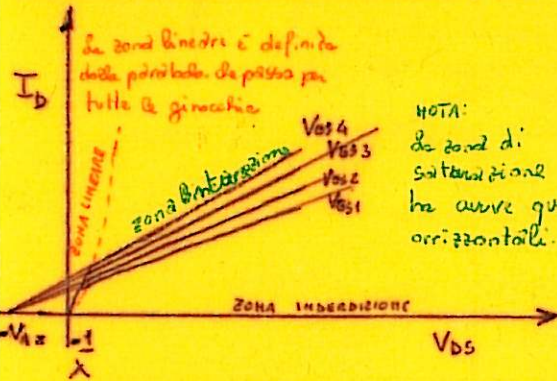 La zona lineare è definita
dalla parabola che passa per
tutte le ginocchia
I_D
ZONA LINEARE
zona
V_GS4
V_GS3
V_GS2
V_GS1
NOTA:
La zona di
saturazione
ha curve qu
orizzontali.
ZONA INDERDIZIONE
-V_A = -1/λ
V_DS